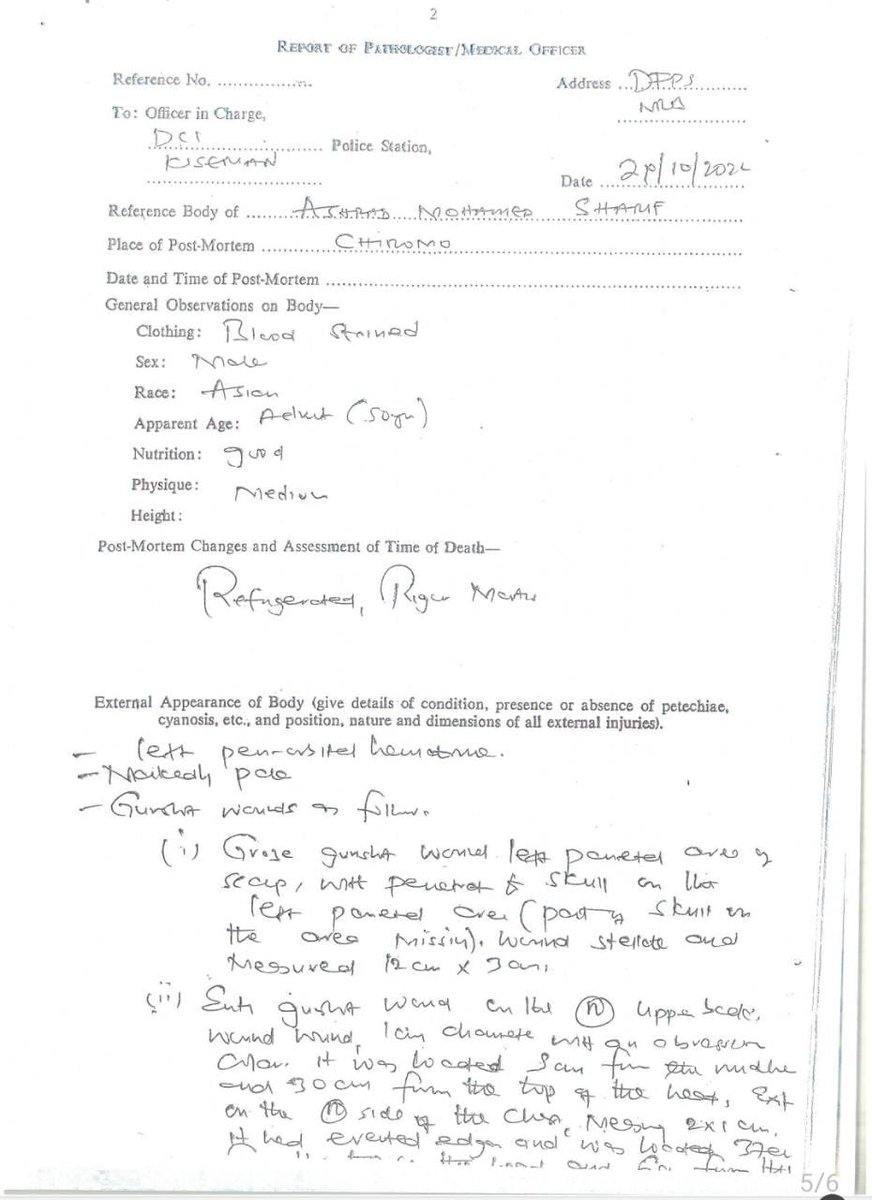 2
REPORT OF PATHOLOGIST/MEDICAL OFFICER
Reference No. ................ Address ... DFPS
To: Officer in Charge, NRB
DCI ........ Police Station,
KISEMAN
Date ... /10/202
Reference Body of ... MOHAMED SHARIF
Place of Post-Mortem ... CHIROMO
Date and Time of Post-Mortem ................
General Observations on Body—
Clothing: Blood Stained
Sex: Male
Race: Asian
Apparent Age: Adult (50yrs)
Nutrition: good
Physique: Medium
Height:
Post-Mortem Changes and Assessment of Time of Death—
Refrigerated, Rigor Mortis
External Appearance of Body (give details of condition, presence or absence of petechiae,
cyanosis, etc., and position, nature and dimensions of all external injuries).
- left peri-orbital hematoma.
- Markedly pale
- Gunshot wounds as follows.
(i) Graze gunshot wound left parietal area of
scalp, with penetrat skull on the
left parietal area (part of skull on
the area missing). Wound stellate and
Measured 12 cm x 3 cm,
(ii) Entry gunshot wound on the (R) upper back.
wound, 1cm diameter with an abrasion
collar. It was located 3cm from the midline
and 30cm from the top of the head, Exit
on the (R) side of the chest, Measuring 2x1 cm.
It had everted edges and was located 37cm
5/6